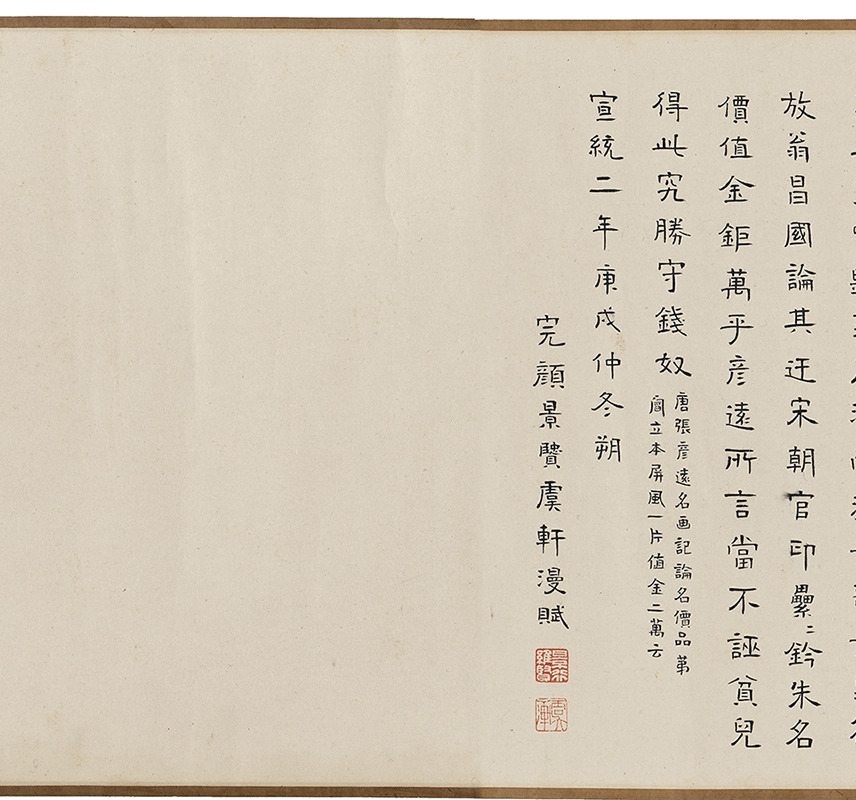 放翁昌國論其迂宋朝官印纍〻鈐朱名
價值金鉅萬乎彦遠所言當不誣貧兒
得此究勝守錢奴
唐張彦遠名画記論名價品第
閻立本屏風一片值金二萬云
宣統二年庚戌仲冬朔
完顏景賢虞軒漫賦